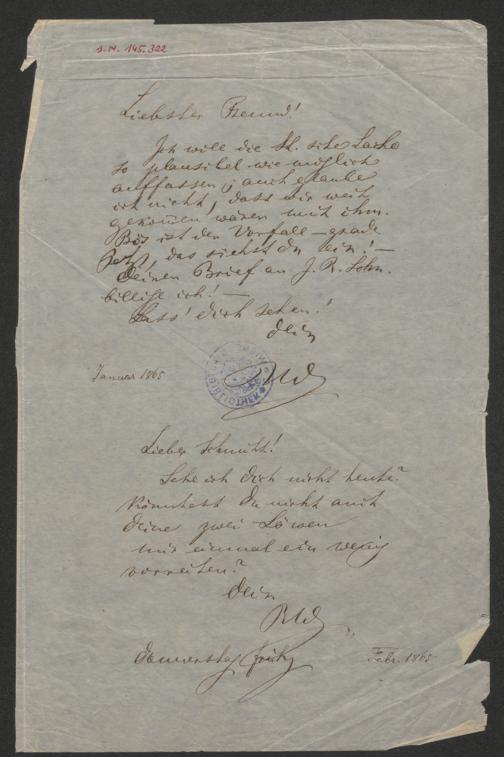 I.N. 145.322
Liebster Freund!
Ich will die St. sche Sache
so plausibel wie möglich
auffassen; auch glaube
ich nicht, dass wir weit
gekommen wären mit ihm.
Bös ist der Vorfall – grade
jetzt, das siehst du ein! –
Deinen Brief an J. R. Sohn.
billige ich! –
Lass' dich sehen!
Dein
Januar 1865
BIBLIOTHEK
Lieber Schmitt!
Sehe ich dich nicht heute?
Könntest Du nicht auch
deine zwei Löwen
mir einmal ein wenig
vorreiten?
Dein
Donnerstag früh
Febr. 1865